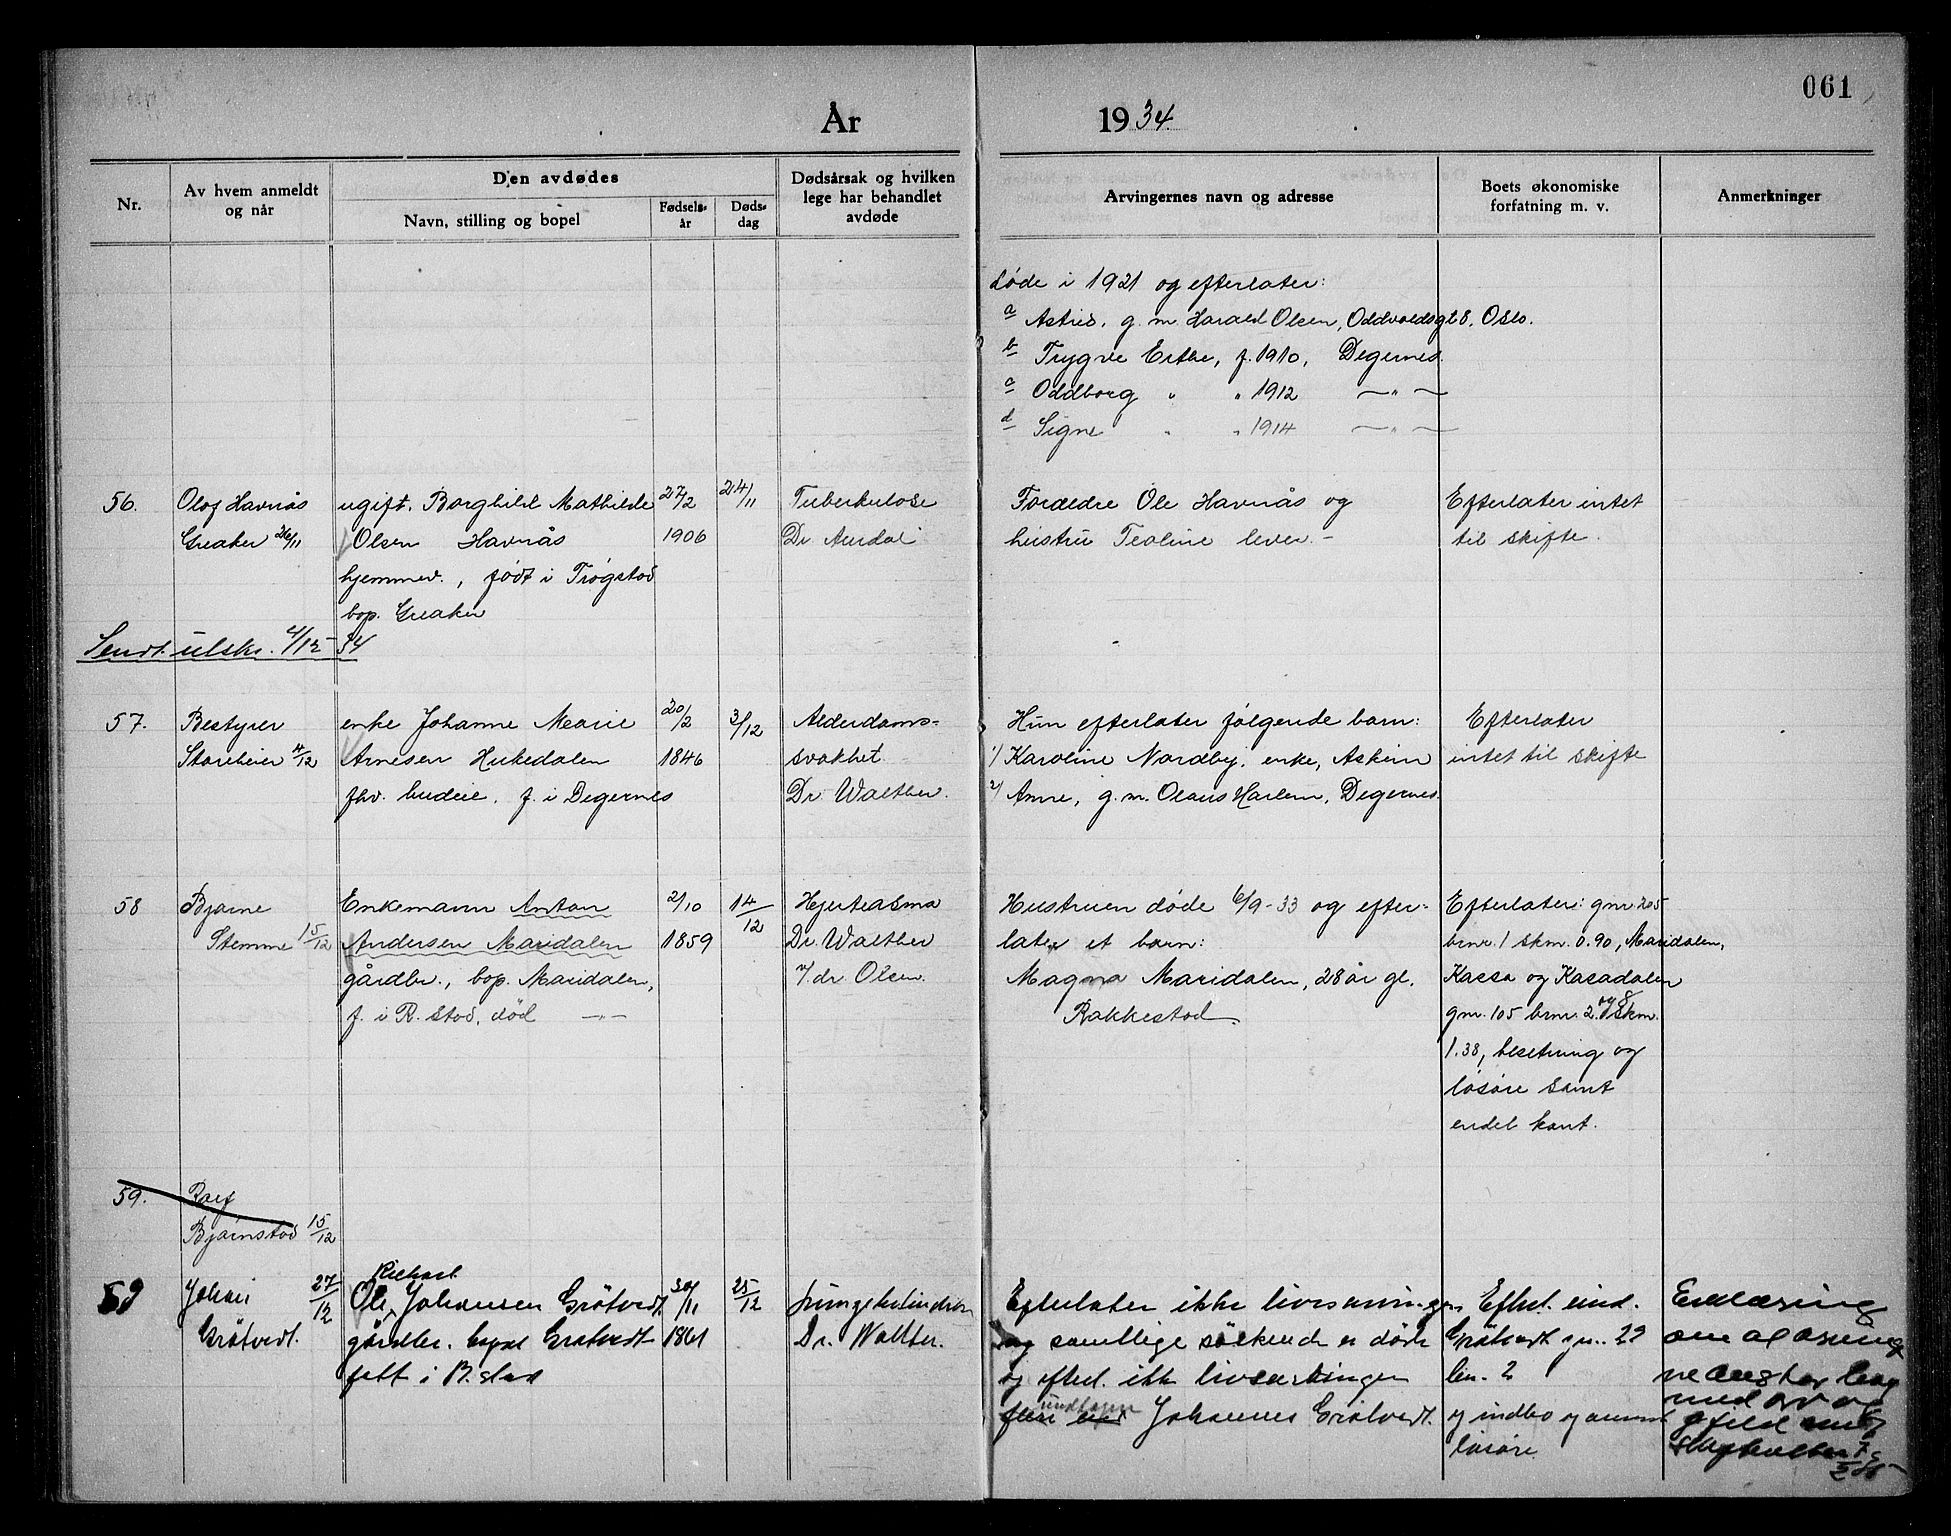 061
År 1934
Nr.
Av hvem anmeldt og når
Den avdødes
Navn, stilling og bopel
Fødsels-år
Døds-dag
Dødsårsak og hvilken lege har behandlet avdøde
Arvingernes navn og adresse
Boets økonomiske forfatning m. v.
Anmerkninger
døde i 1921 og efterlater:
a Astrid, g. m. Harald Olsen, Oddvoldsg 28, Oslo.
b Trygve Erthe, f. 1910, Degernes.
c Oddborg " " 1912 — " —
d Signe " " 1914 — " —
56.
Olof Havnås
Greaker 26/11
ugift. Borghild Mathilde
Olsen Havnås
hjemmev., født i Trøgstad
bop. Greaker
27/2
1906
24/11
Tuberkulose
Dr. Aurdal
Foreldre Ole Havnås og
hustru Teoline lever. -
Efterlater intet
til skifte.
Sendt utskr. 4/12 34
57.
Bestyrer
Storeheier 4/12
enke Johanne Marie
Arnesen Hukedalen
fhv. budeie, f. i Degernes
20/2
1846
3/12
Alderdoms-
svakhet
Dr. Walther.
Hun efterlater følgende barn:
1) Karoline Nordby, enke, Askim
2) Anne, g. m. Olaus Harlem, Degernes.
Efterlater
intet til skifte
58
Bjarne
Stemme 15/12
Enkemann Anton
Andersen Maridalen
gårdbr., bop. Maridalen,
f. i R.stad, død — " —
2/10
1859
14/12
Hjerteasma
Dr. Walther
v/ dr Olsen.
Hustruen døde 6/9-33 og efter-
later et barn:
Magna Maridalen, 28 år gl.
Rakkestad.
Efterlater: gnr. 205
brnr. 1 skm. 0.90, Maridalen,
Kassa og Kasadalen
gnr. 105 brnr. 2 og 8 skm.
1.38, besetning og
løsøre samt
endel kont.
59.
Rolf
Bjørnstad 15/12
59
Johan 27/12
Grötvedt.
Richart
Ole Johansen Grötvedt
gårdbr. bopæl Grötvedt
født i R.stad
30/11
1861
25/12
Dr. Walther.
Efterlater ikke livsarvinger
og samtlige söskende er døde
og efterl. ikke livsarvinger
undtagen
Johannes Grötvedt.
Efterl. eiend.
Grötvedt gnr. 29
bn. 2
og indbo og annet
løsøre
Erklæring